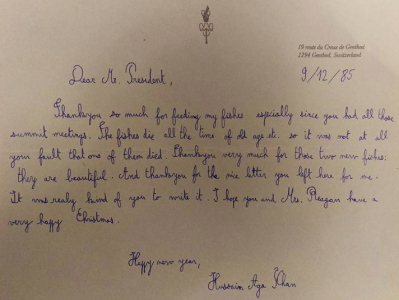 19 route du Creux de Genthod
1294 Genthod, Switzerland
9/12/85
Dear Mr. President,
Thankyou so much for feeding my fishes espcially since you had all those
summit meetings. The fishes die all the time of old age etc. so it was not at all
your fault that one of them died. Thankyou very much for those two new fishes:
they are beautiful. And thankyou for the nice letter you left here for me.
It was realy kind of you to write it. I hope you and Mrs. Reagan have a
very happy Christmas.
Happy new year,
Hussain Aga Khan